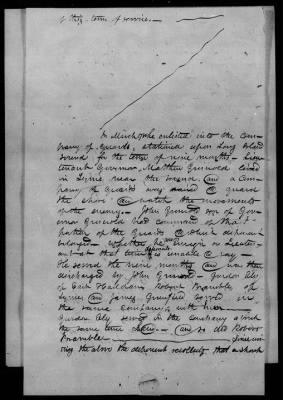 of thely term of service.
In March he enlisted into the Com-
pany of guards, stationed upon Long Island
Sound for the term of nine months - Lieu-
tenant Governor, Matthew Griswold lived
in Lyme near the Sound and a Com-
pany of guards were @ guard
the shore @ watch the movements
of the enemy. John Griswold son of Gov-
ernor Griswold had command of that
portion of the Guards @ which deponent
belonged - whether he was Ensign or Lieuten-
ant at that time deponent is unable @ say -
He served the nine months and was then
discharged by John Griswold - Gurdon Ely
of East Haddam Robert Bramble of
Lyme and James Greenfield served in
the same company with him -
Gurdon Ely served in the Company about
the same time and so did Robert
Bramble -
the above the deponent recollects that a short